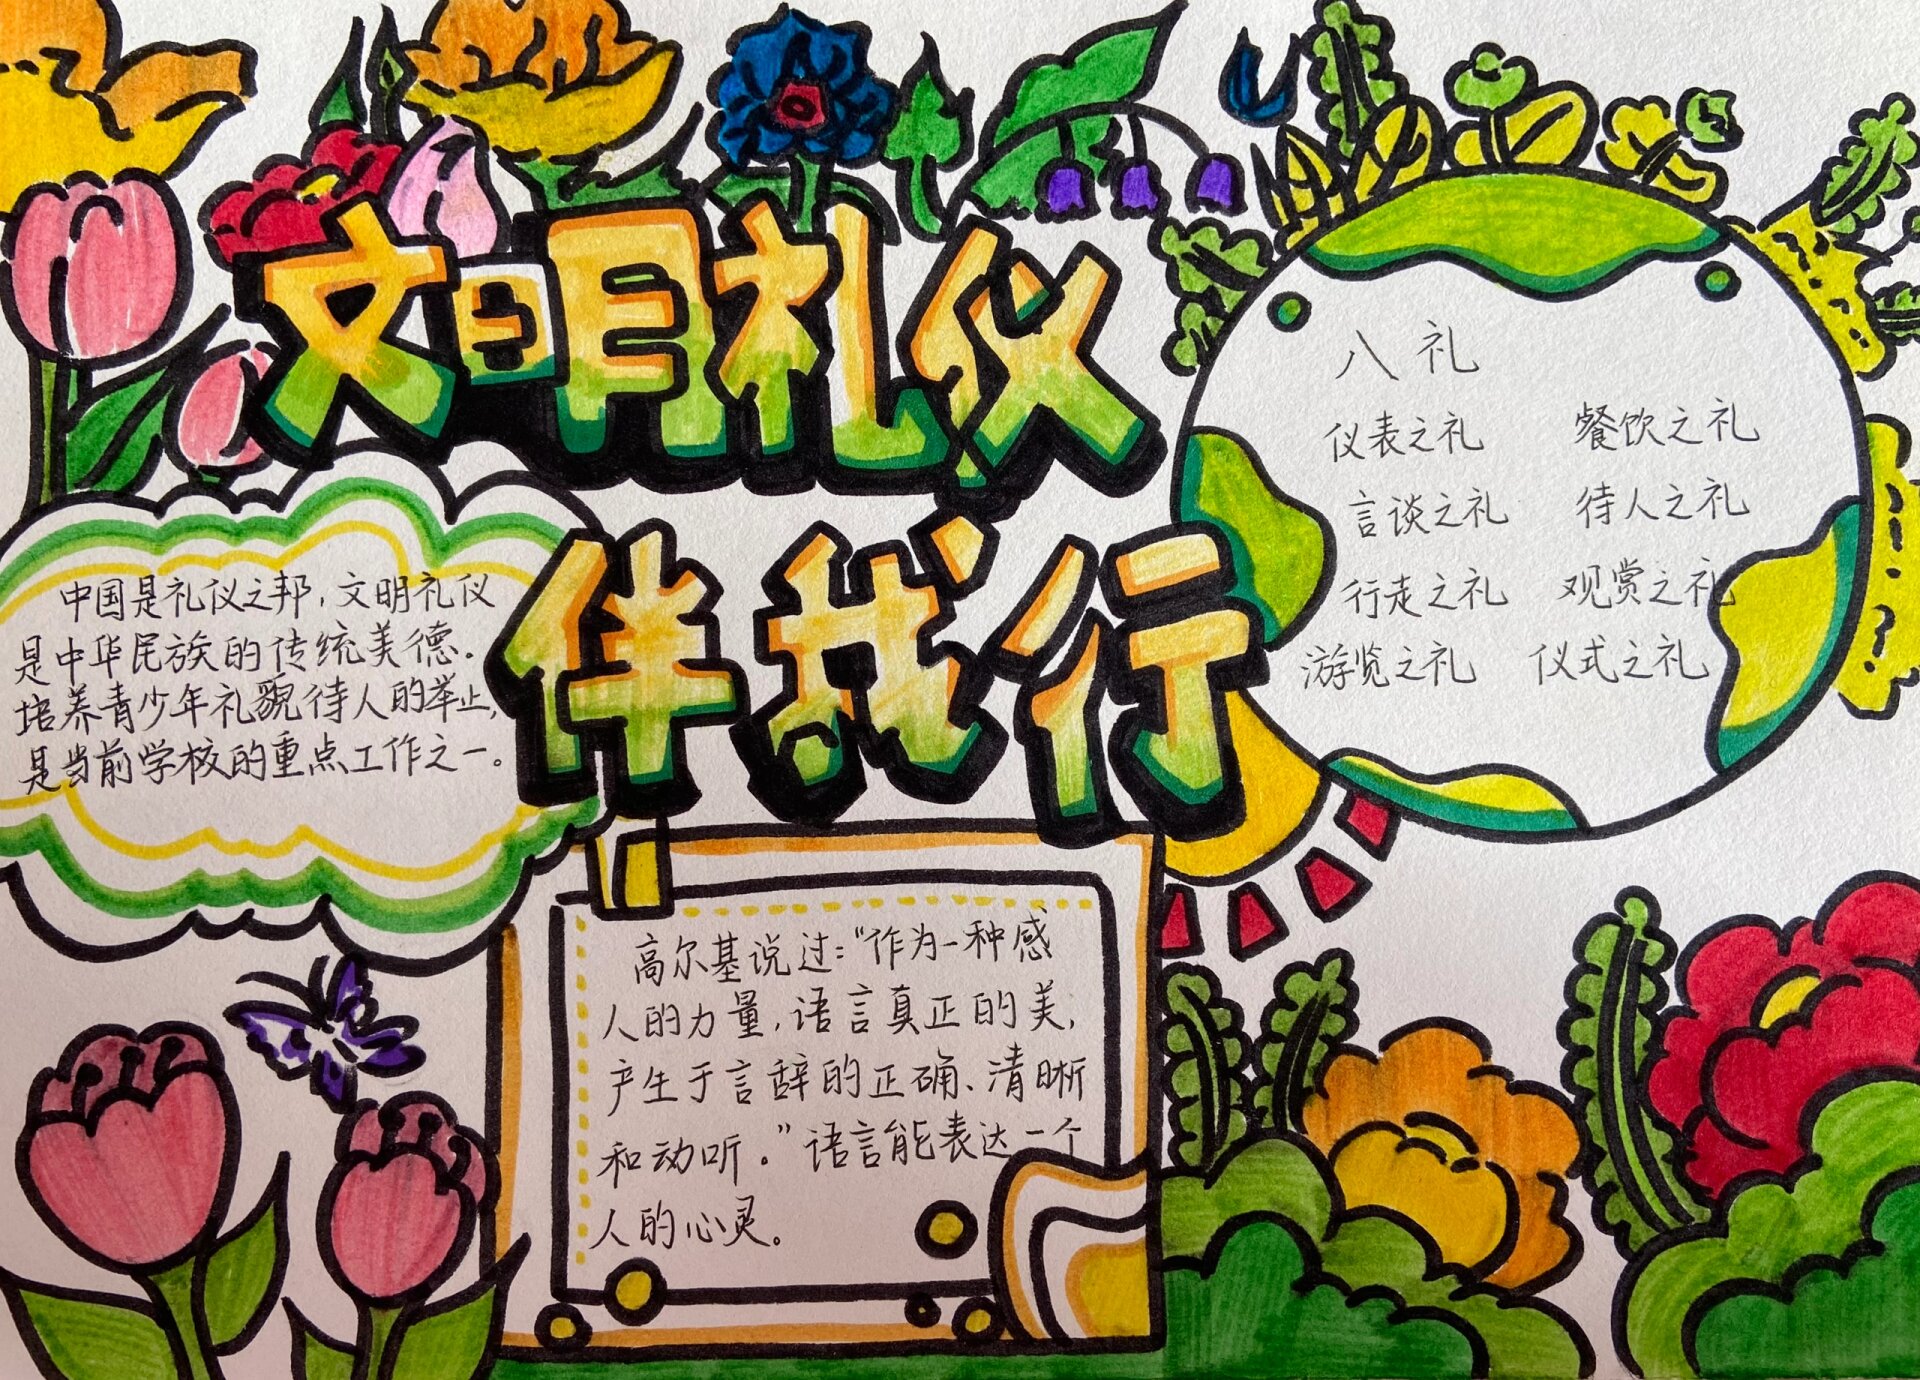 文明礼仪
伴我行
中国是礼仪之邦,文明礼仪
是中华民族的传统美德.
培养青少年礼貌待人的举止,
是当前学校的重点工作之一。
八礼
仪表之礼 餐饮之礼
言谈之礼 待人之礼
行走之礼 观赏之礼
游览之礼 仪式之礼
高尔基说过:“作为一种感
人的力量,语言真正的美,
产生于言辞的正确、清晰
和动听。”语言能表达一个
人的心灵。